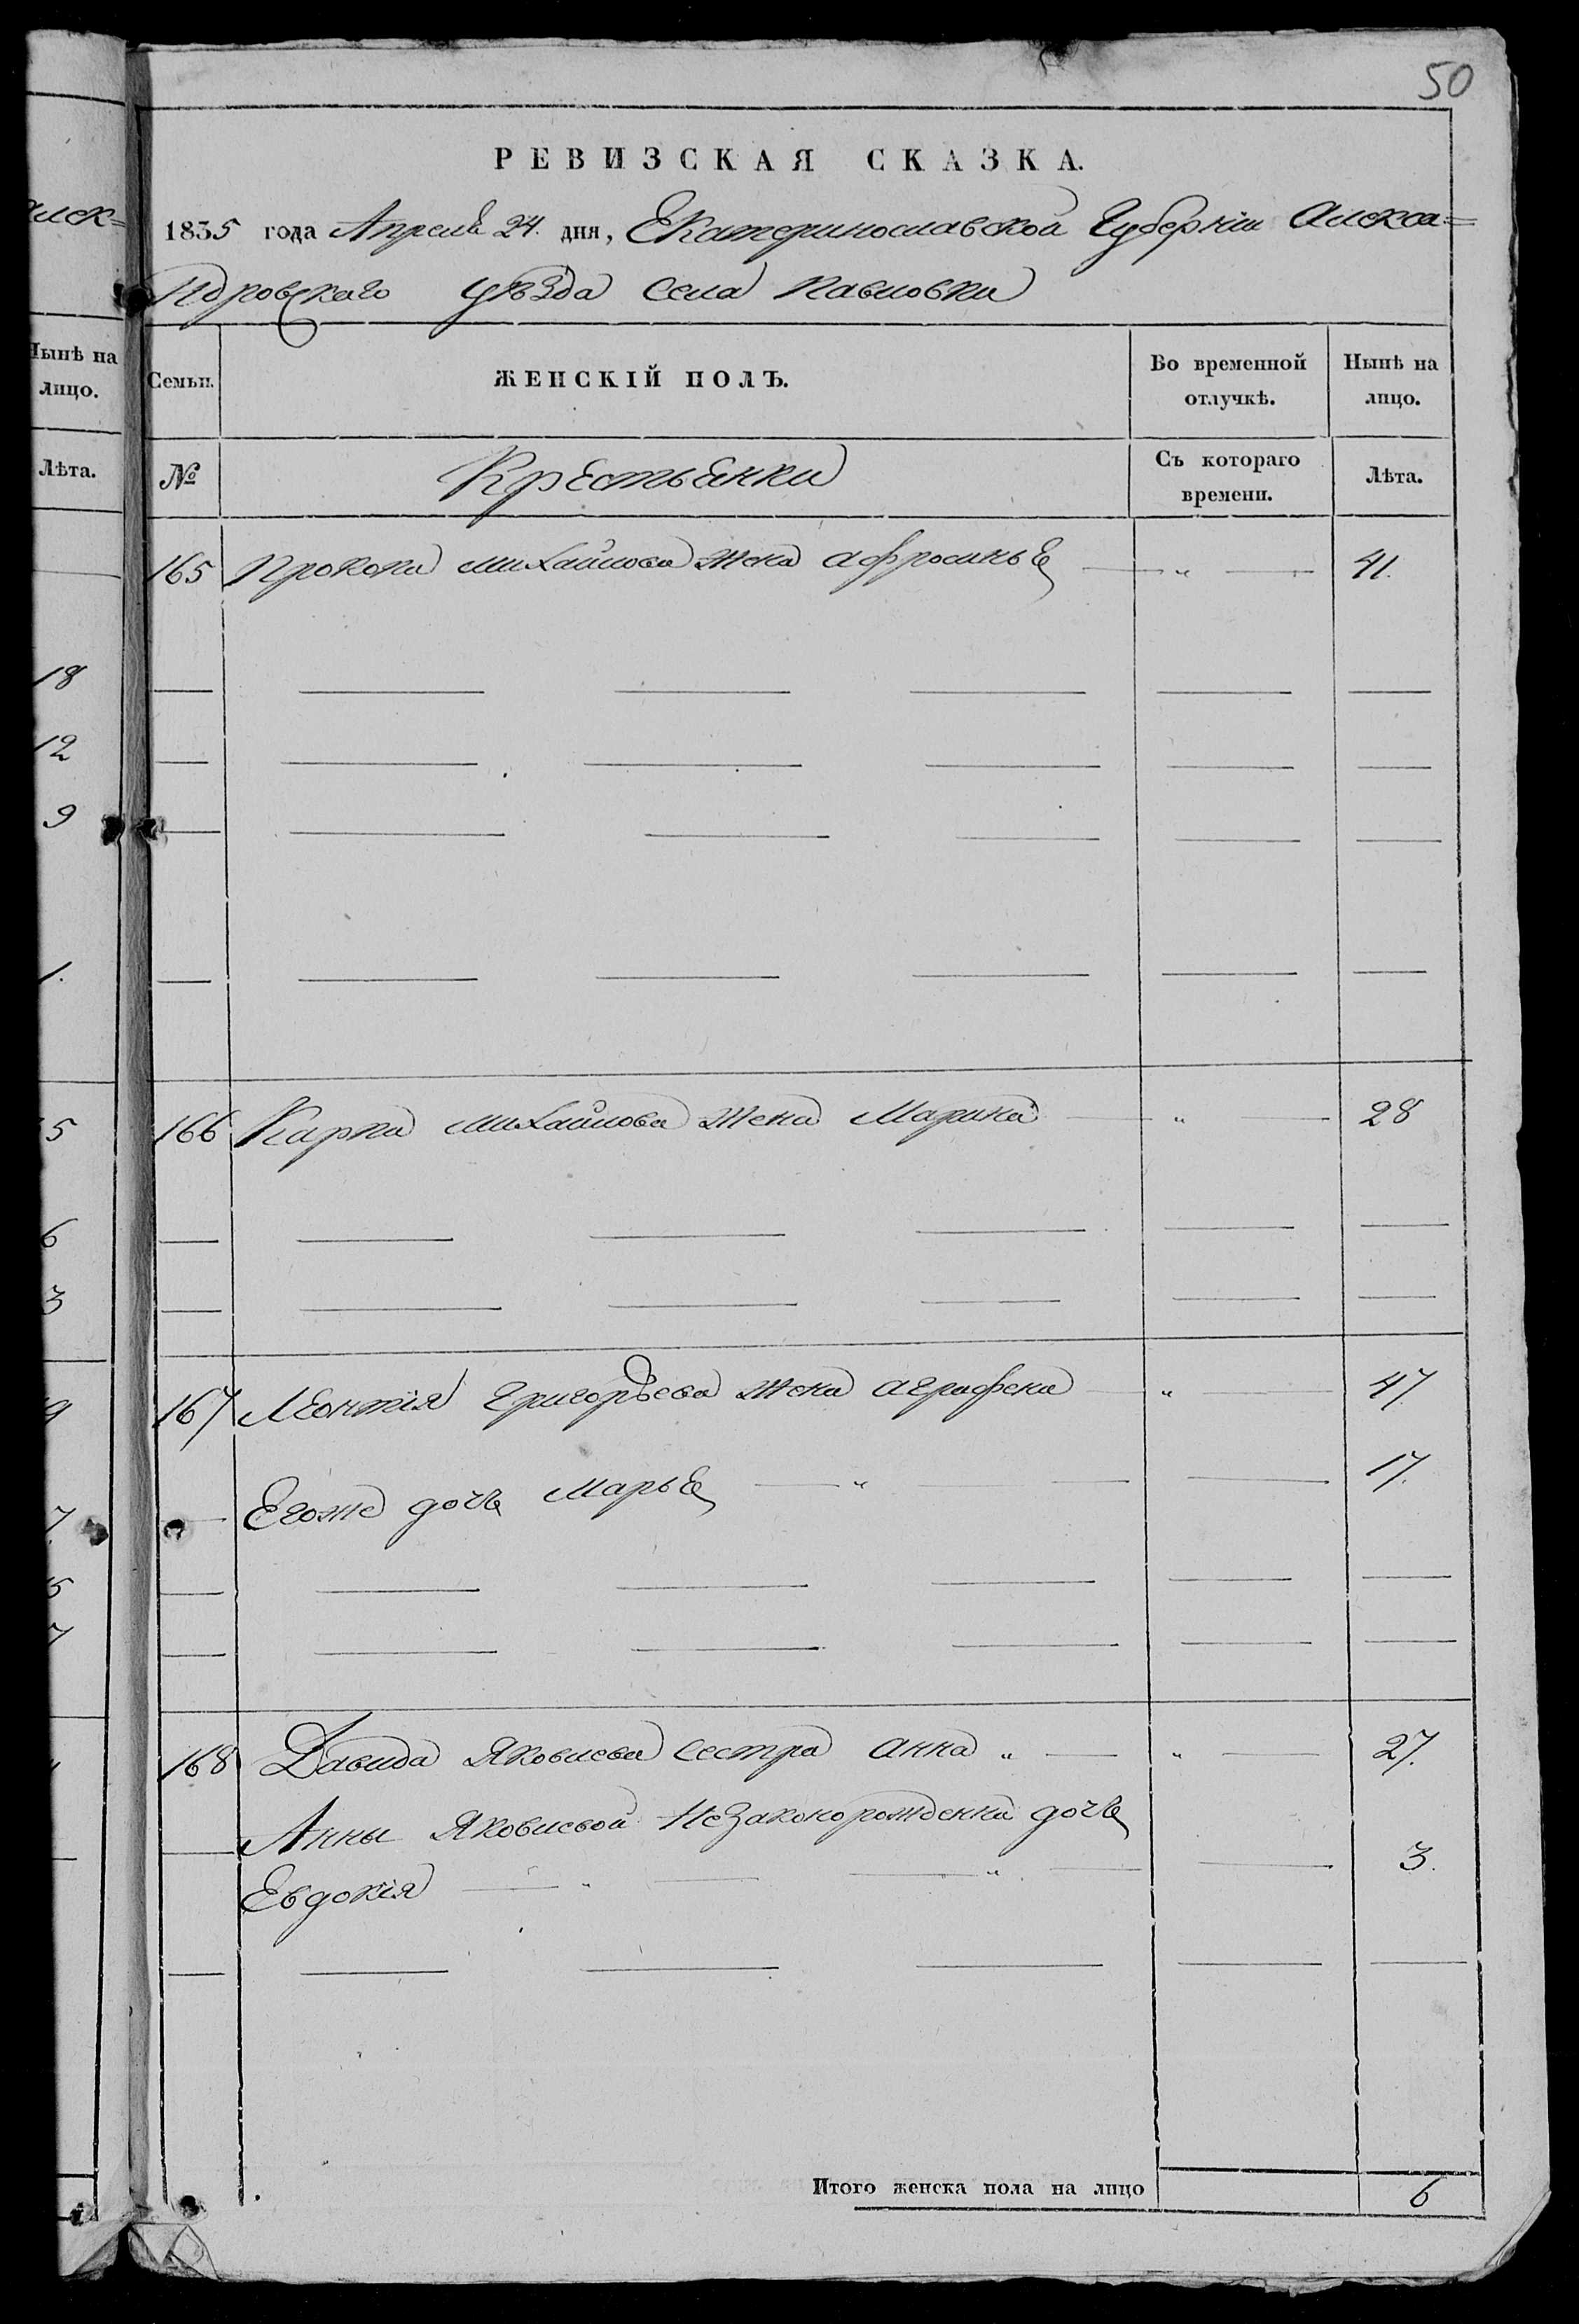 50
РЕВИЗСКАЯ СКАЗКА.
1835 года Апреля 24. дня, Екатеринославской Губернiи Алекса=
ндровского уѣзда Села Павловки
алек=
Нынѣ на
лицо.
Лѣта.
Семьи.
ЖЕНСКІЙ ПОЛЪ.
Во временной
отлучкѣ.
Нынѣ на
лицо.
№
Крестьянки
Съ котораго
времени.
Лѣта.
165 Прокопа Михайлова жена Афросинья " 41.
18
12
9
1.
5 166 Карпа Михайлова жена Марина " 28
6
3
9 167 Леонтiя Григорьева жена Аграфена " 47
7. Егоже дочь Марья " 17.
5
7
168 Давида Яковлева сестра Анна " " 27.
Анны Яковлевой незаконорожденна дочь
Евдокiя " " 3.
Итого женска пола на лицо 6